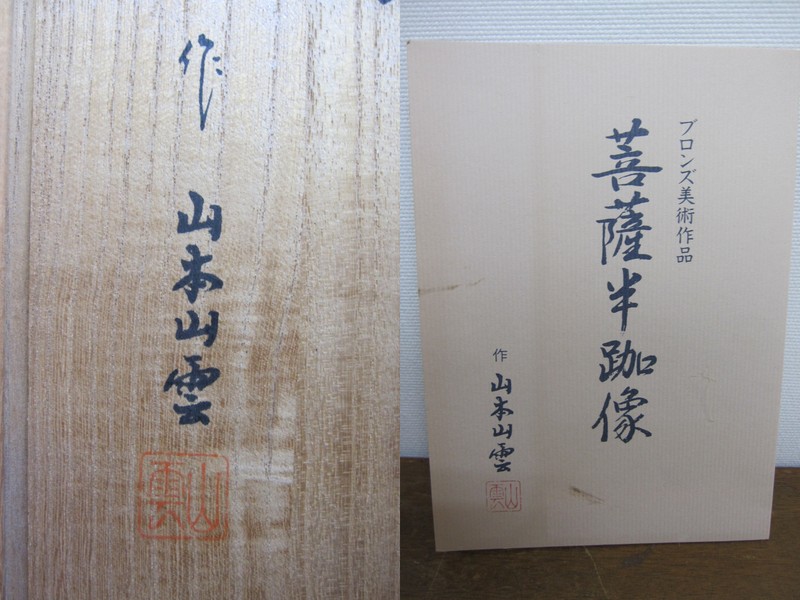 作
山本山雲
山雲
ブロンズ美術作品
菩薩半跏像
作 山本山雲
山雲